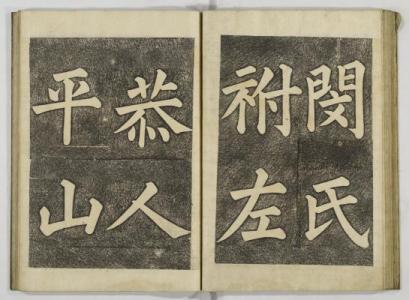 閔氏
祔左
恭人
平山